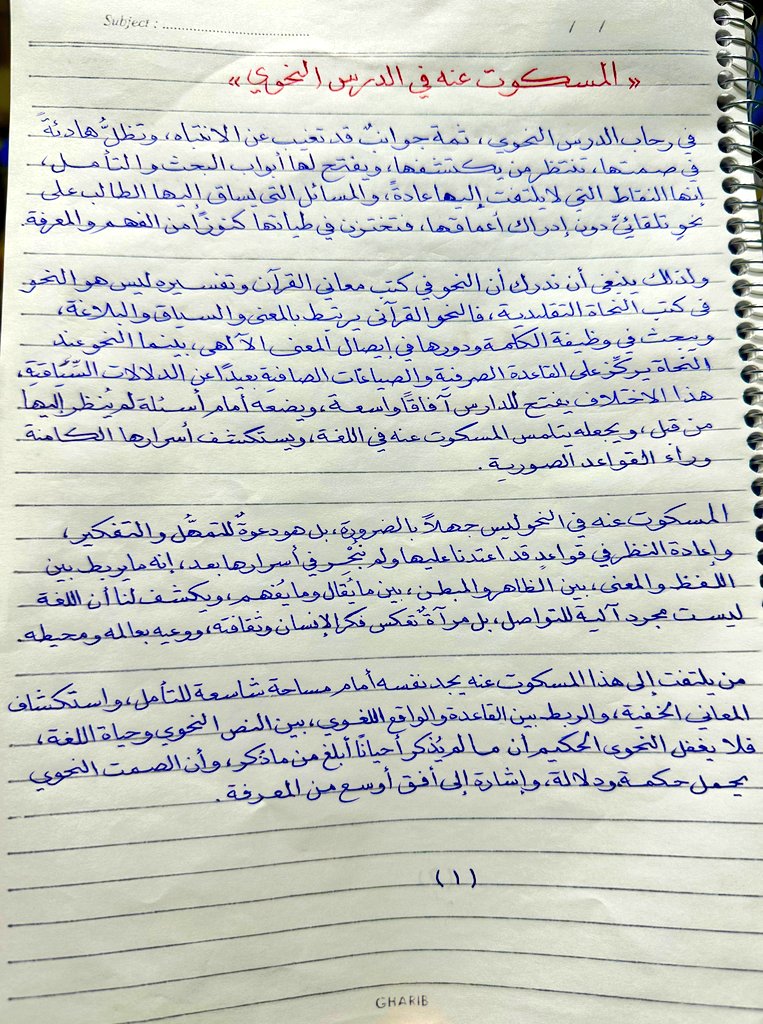 Subject : ....................................
/ /
« المسكوت عنه في الدرس النحوي »
في رحاب الدرس النحوي، ثمة جوانبٌ قد تغيب عن الانتباه، وتظلُّ هادئةً
في صمتها، تنتظر من يكتشفها، ويفتح لها أبواب البحث والتأمل،
إنها النقاط التي لا يلتفت إليها عادةً، والمسائل التي يساق إليها الطالب على
نحوٍ تلقائيٍّ دون إدراك أعماقها، فتختزن في طياتها كنوزًا من الفهم والمعرفة.
ولذلك ينبغي أن ندرك أن النحو في كتب معاني القرآن وتفسيره ليس هو النحو
في كتب النحاة التقليدية، فالنحو القرآني يرتبط بالمعنى والسياق والبلاغة،
ويبحث في وظيفة الكلمة ودورها في إيصال المعنى الآلهي، بينما النحو عند
النحاة يركّز على القاعدة الصرفية والصياغات الصافية بعيدًا عن الدلالات السِّيَاقِيَّةِ،
هذا الاختلاف يفتح للدارس آفاقًا واسعة، ويضعه أمام أسئلة لم يُنظر إليها
من قبل، ويجعله يتلمس المسكوت عنه في اللغة، ويستكشف أسرارها الكامنة
وراء القواعد الصورية.
المسكوت عنه في النحو ليس جهلاً بالضرورة، بل هو دعوةٌ للتمهُّل والتفكير،
وإعادة النظر في قواعدٍ قد اعتدنا عليها ولم نُبْحِر في أسرارها بعد، إنه ما يربط بين
اللفظ والمعنى، بين الظاهر والمبطن، بين ما يُقال وما يُفهم، ويكشف لنا أن اللغة
ليست مجرد آلية للتواصل، بل مرآةٌ تعكس فكر الإنسان وثقافته، ووعيه بعالمه ومحيطه.
من يلتفت إلى هذا المسكوت عنه يجد نفسه أمام مساحة شاسعة للتأمل، واستكشاف
المعاني الخفية، والربط بين القاعدة والواقع اللغوي، بين النص النحوي وحياة اللغة،
فلا يغفل النحوي الحكيم أن ما لم يُذكر أحيانًا أبلغ من ما ذكر، وأن الصمت النحوي
يحمل حكمة ودلالة، وإشادة إلى أفق أوسع من المعرفة.
(١)
GHARIB